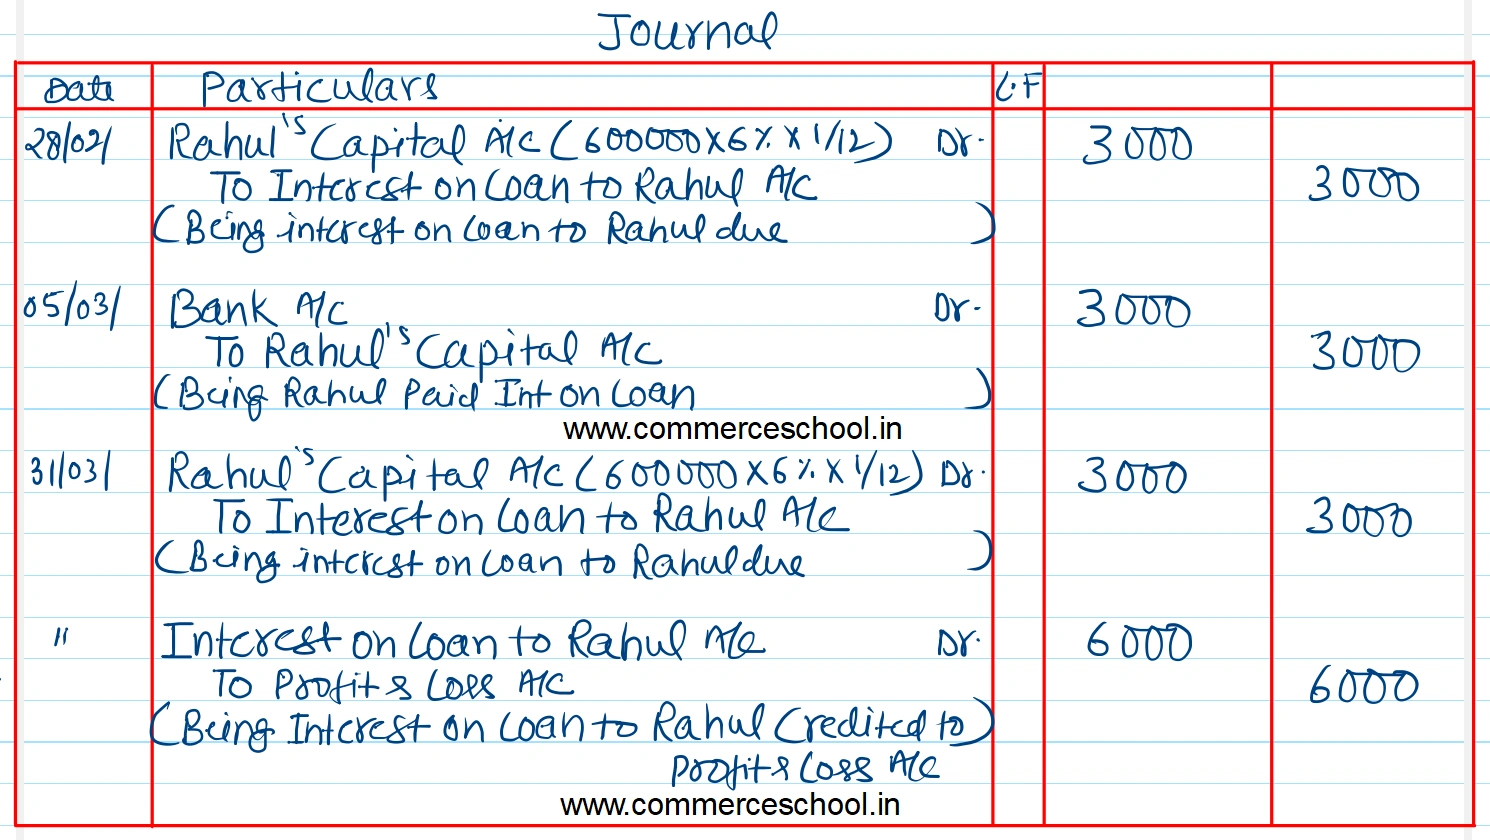 Journal
Date Particulars L.F
28/02/ Rahul's Capital A/C (600000X6%X1/12) Dr. 3000
To Interest on Loan to Rahul A/C 3000
(Being interest on Loan to Rahul due )
05/03/ Bank A/C Dr. 3000
To Rahul's Capital A/C 3000
(Being Rahul Paid Int on Loan )
www.commerceschool.in
31/03/ Rahul's Capital A/C (600000X6%X1/12) Dr. 3000
To Interest on Loan to Rahul A/C 3000
(Being interest on Loan to Rahul due )
" Interest on Loan to Rahul A/c Dr. 6000
To Profit & Loss A/C 6000
(Being Interest on Loan to Rahul Credited to )
Profit & Loss A/c
www.commerceschool.in